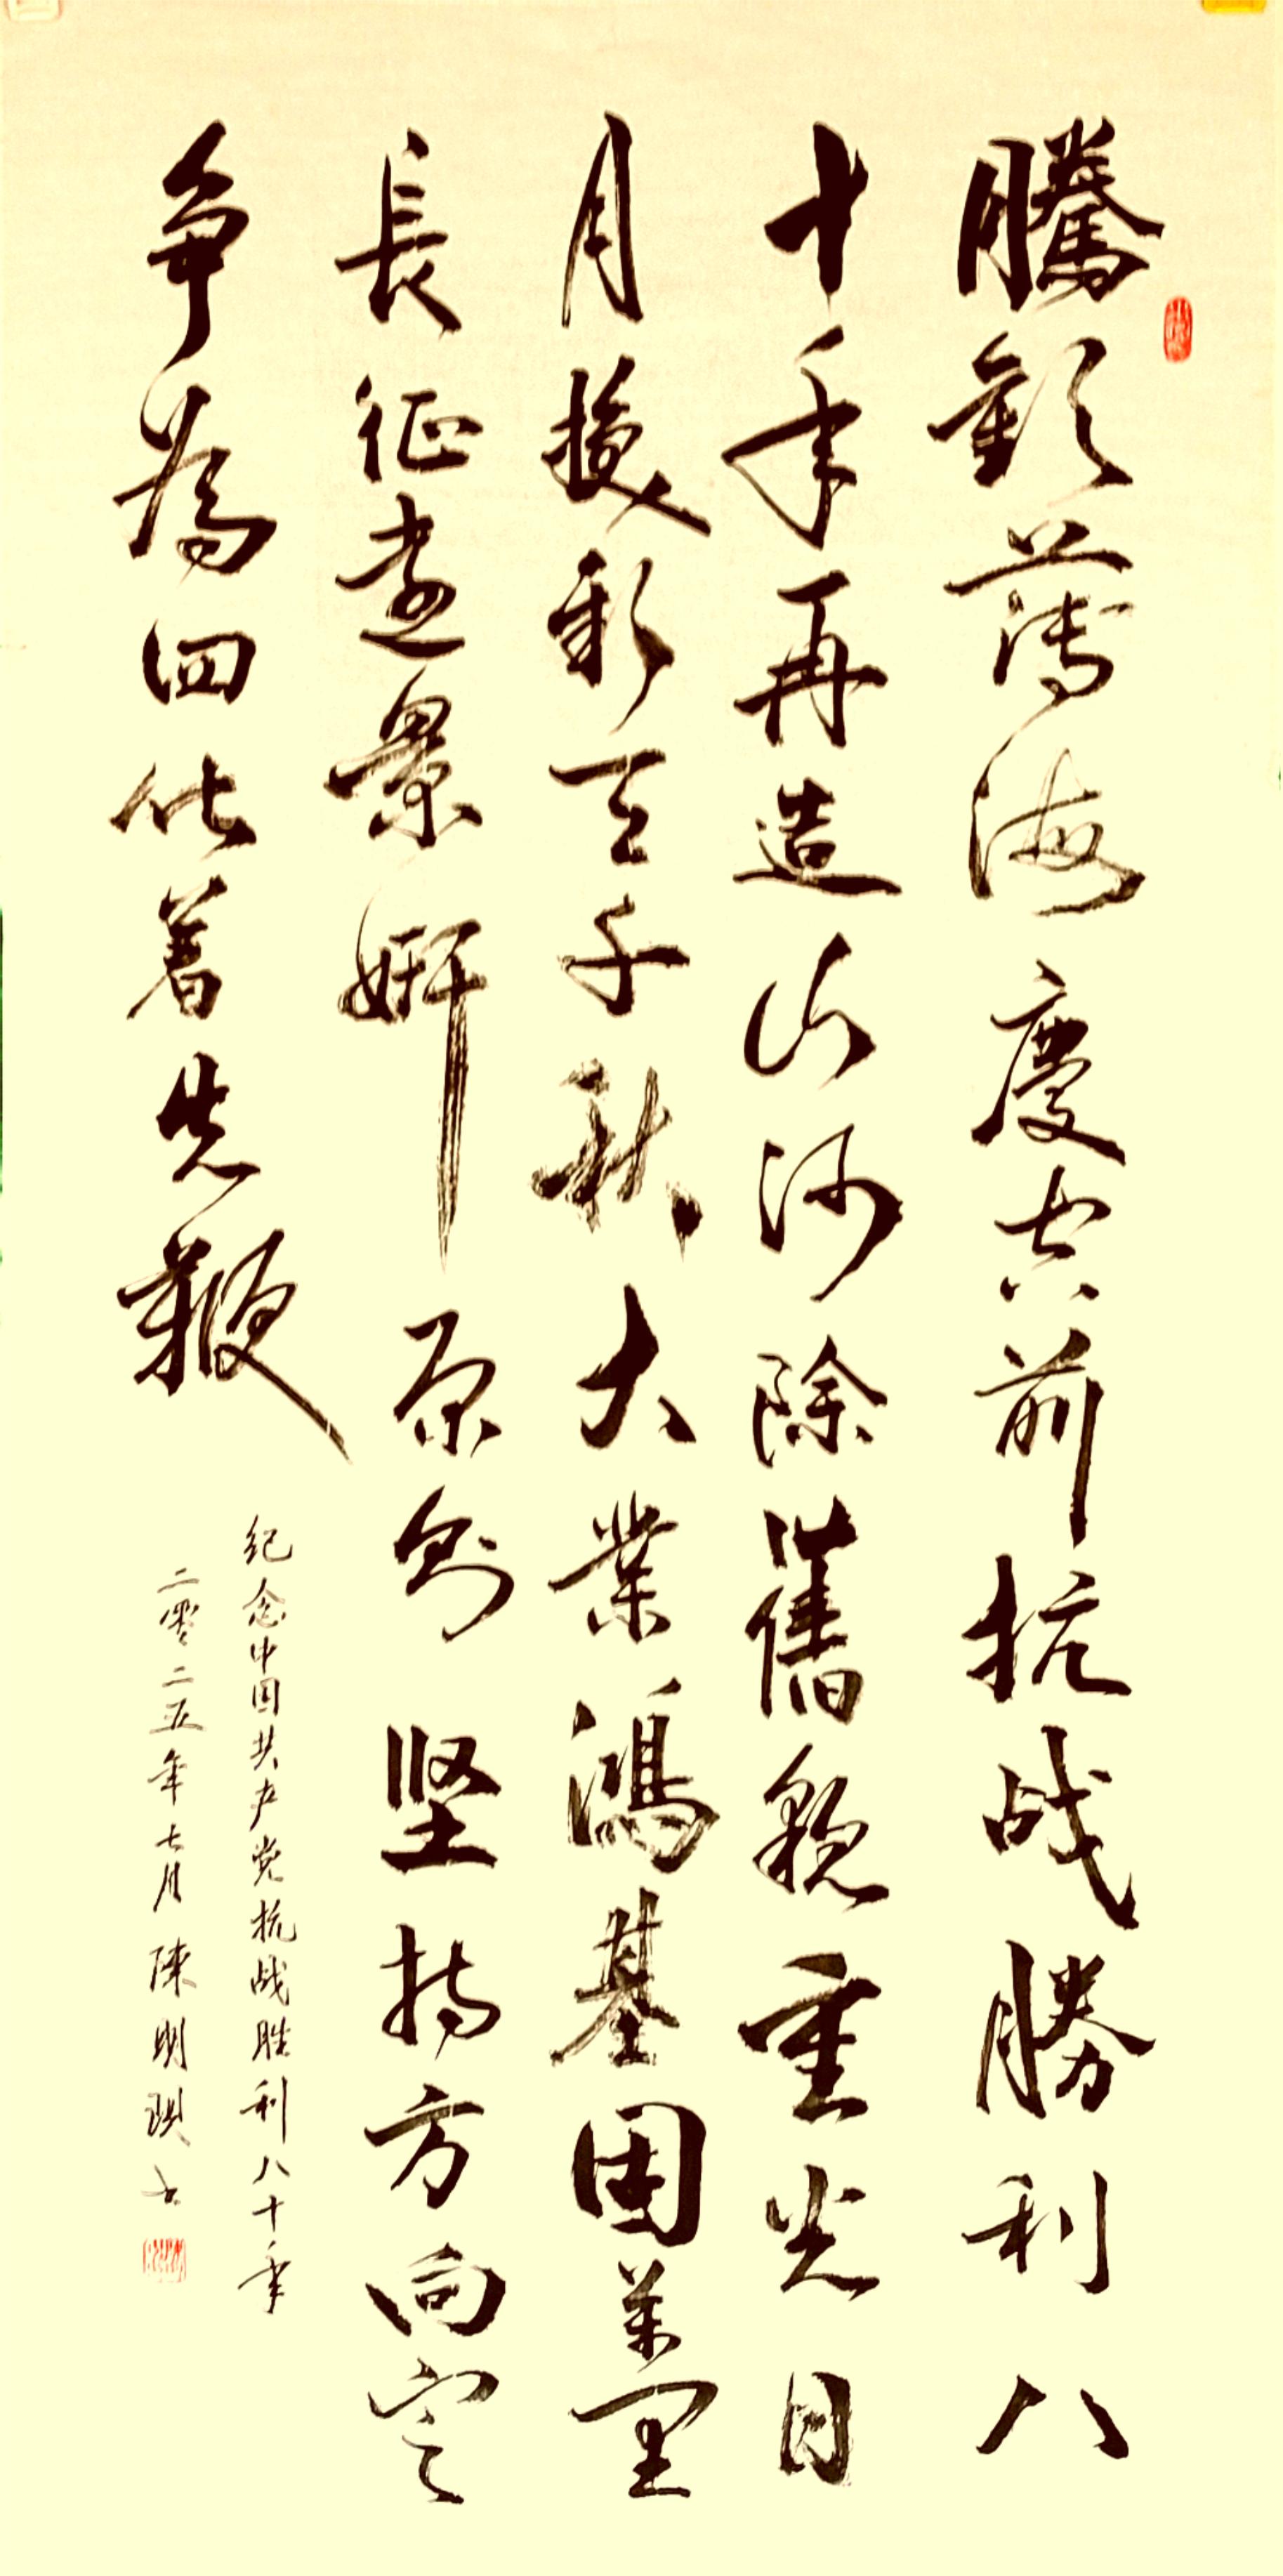 騰歡薄海慶空前抗战勝利八
十年再造山河除舊貌重光日
月換新天千秋大業鴻基固萬里
長征遠景妍原則坚持方向定
争為四化著先鞭
纪念中国共产党抗战胜利八十年
二零二五年七月陳明书